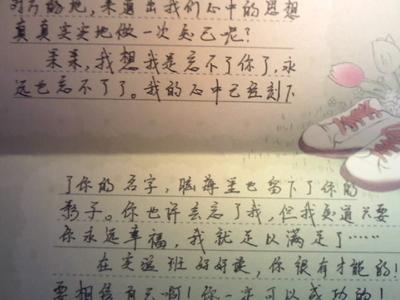 来道出我们心中的思想
真真实实地做一次知己呢?
我想我是忘不了你了,永
远也忘不了了。我的心中已经刻下
了你的名字,脑海里也留下了你的
影子。你也许会忘了我,但我知道只要
你永远幸福,我就足以满足了……
在实验班好好读,你很有才能的!
要相信自己啊!你一定可以成功的!